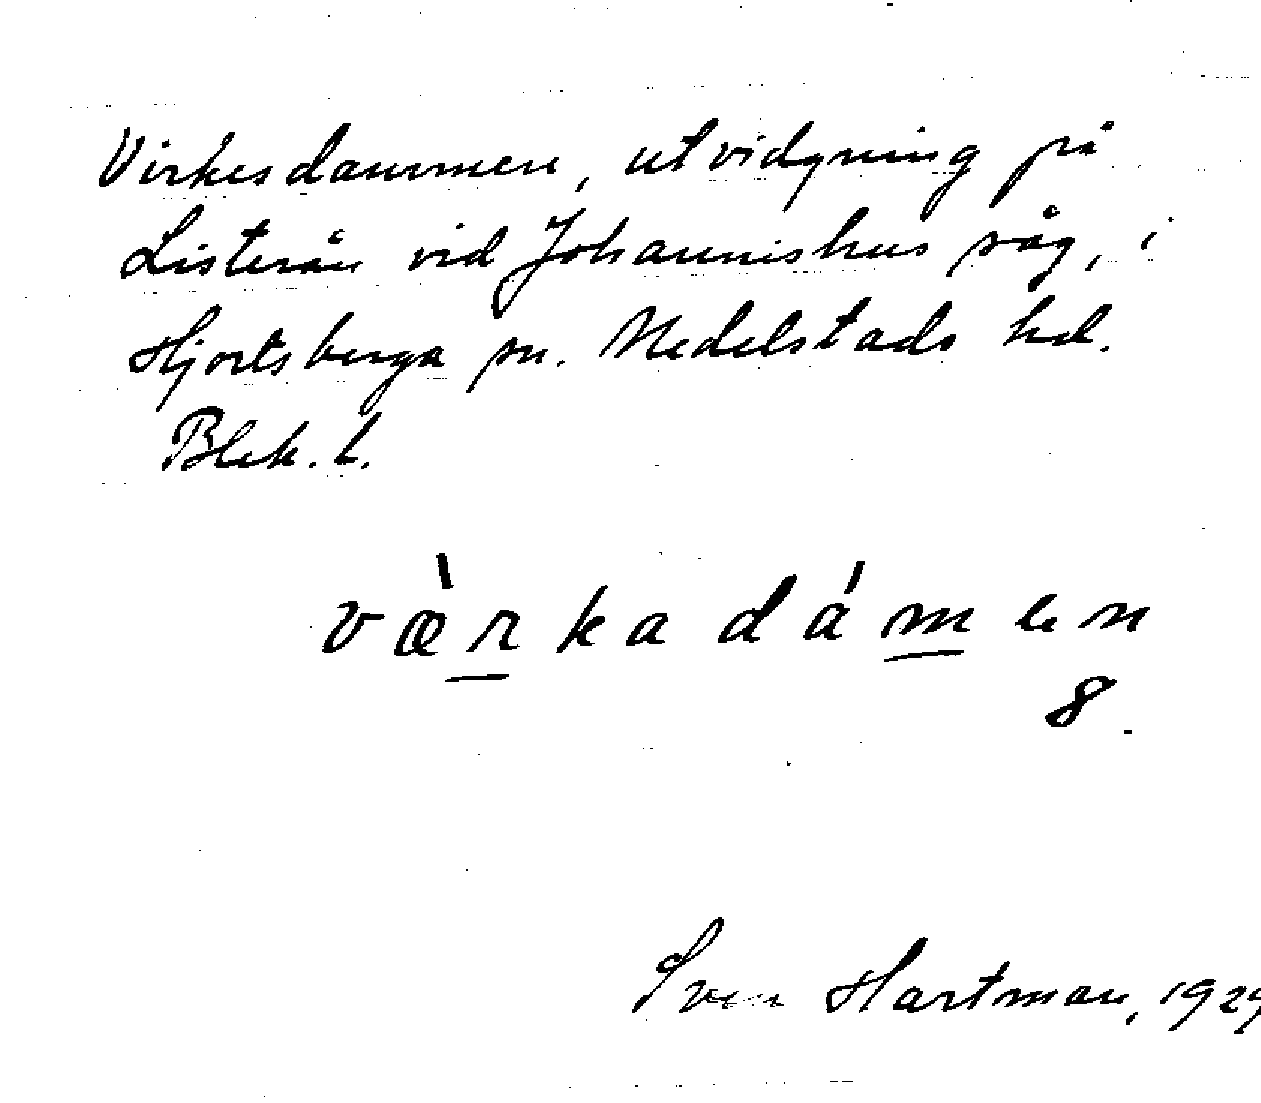 Virkesdammen, utvidgning på
Listerån vid Johannishus såg, i
Hjortsberga sn. Medelstads hd.
Blek. l.
væ̀rkadámen
8.
Sven Hartman, 1929